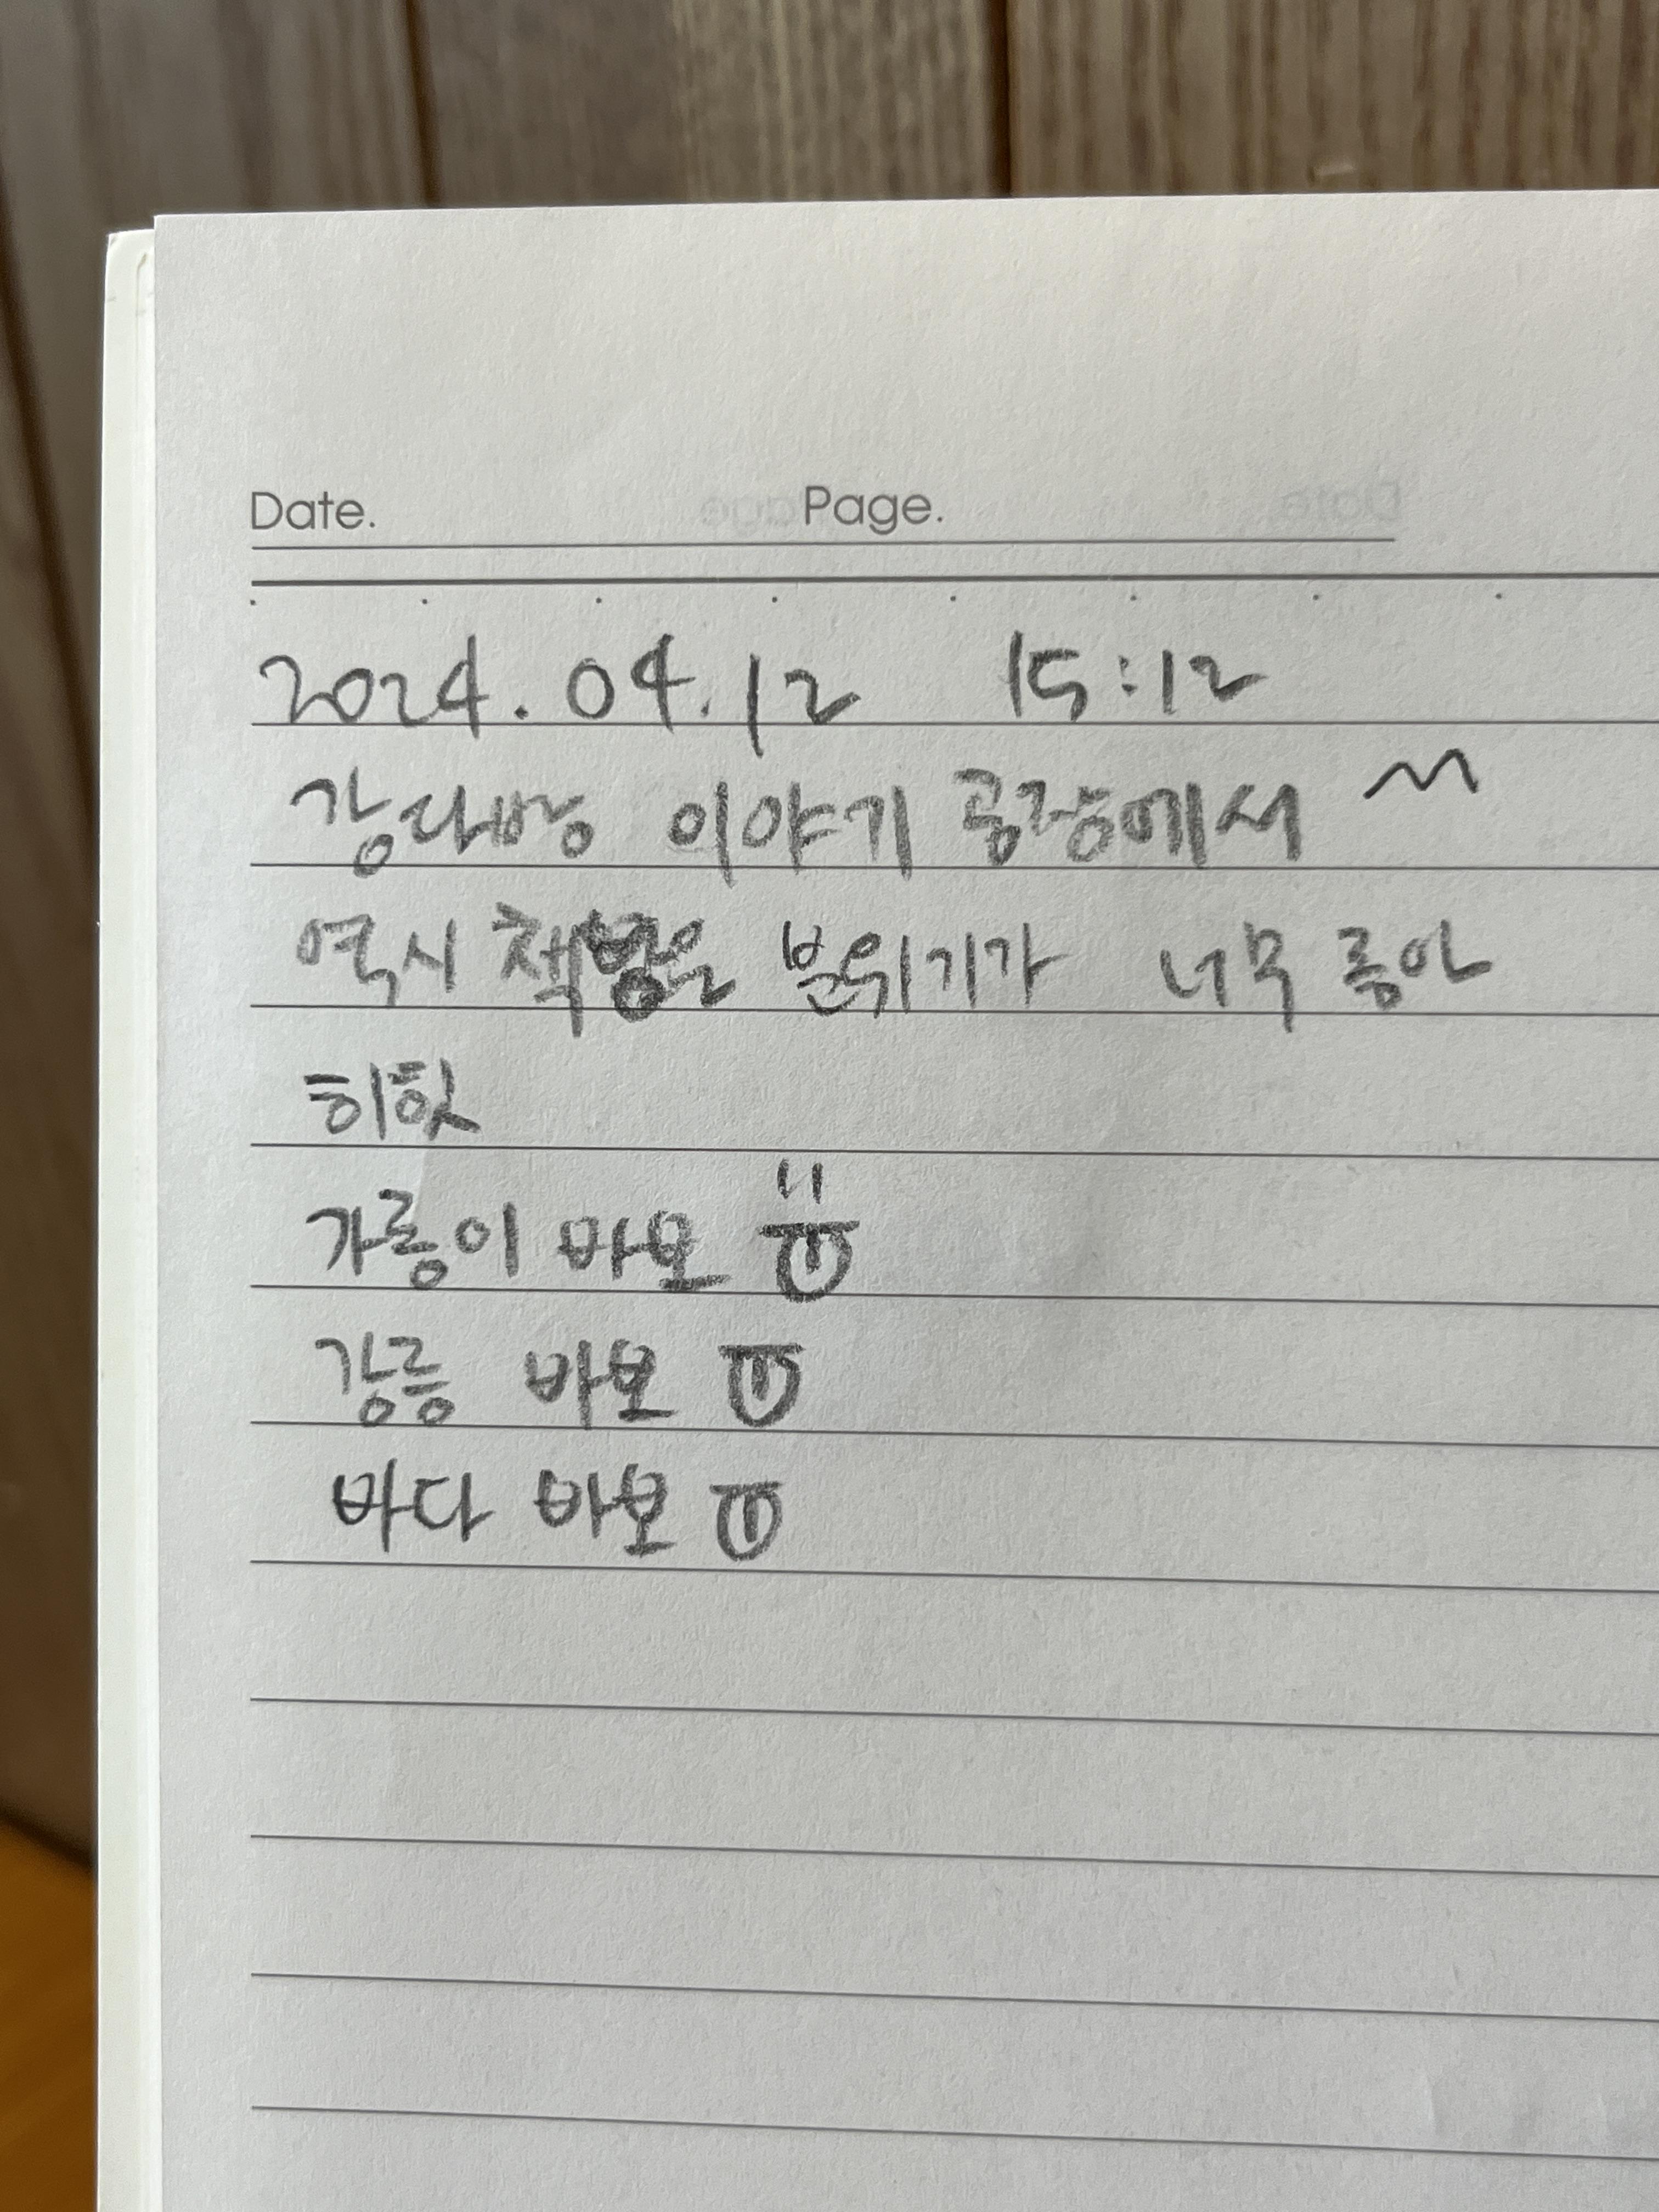 Date. Page.
2024.04.12 15:12
강다방 이야기 공장에서 ~
역시 책방은 분위기가 너무 좋아
히힛
가릉이 바보
강릉 바보
바다 바보